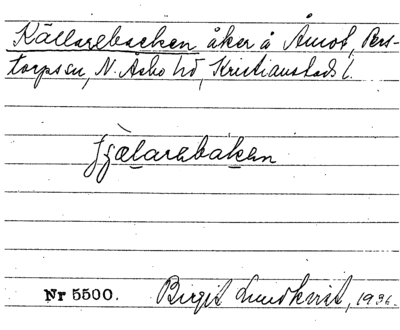 Källarebacken åker å Åmot, Pers-
torps sn, N. Åsbo hd, Kristianstads l.
Nr 5500. Birgit Lundkvist, 1936.